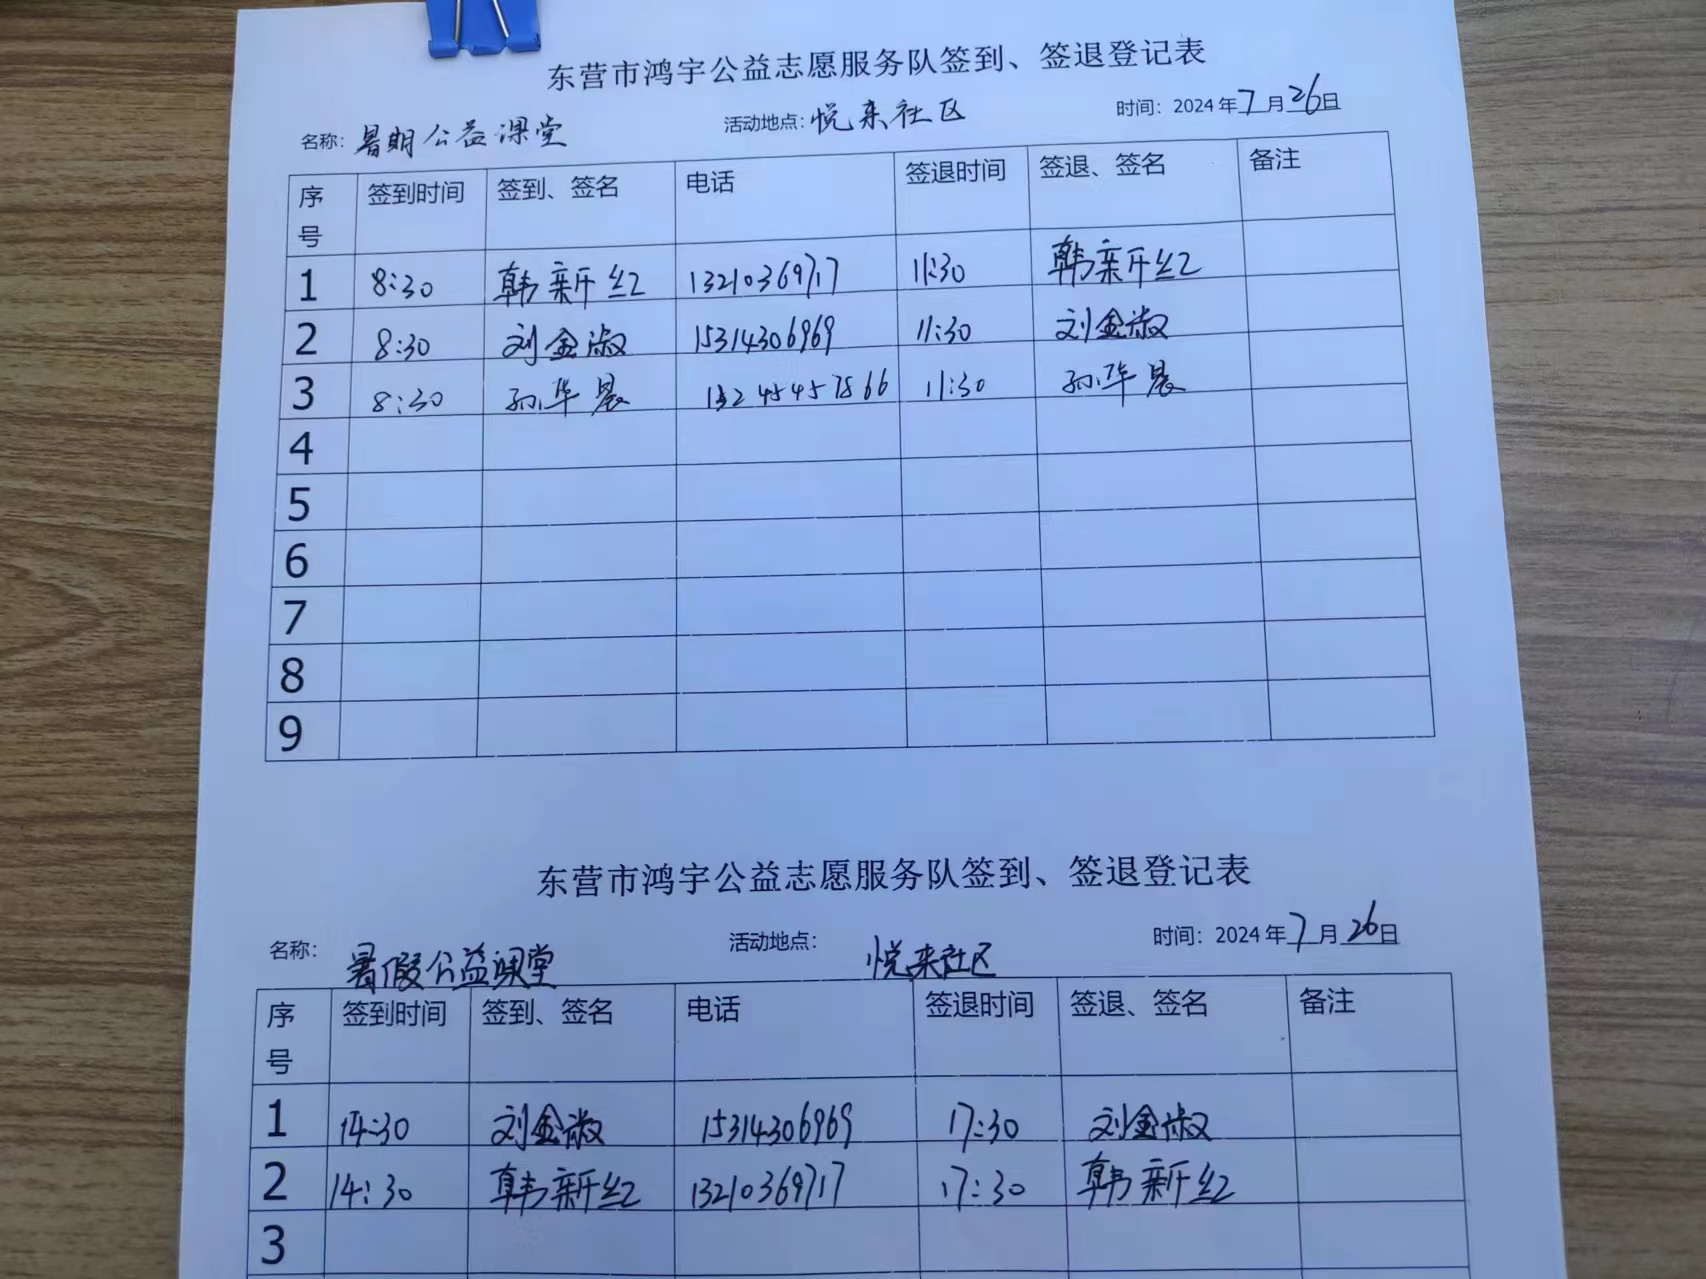 东营市鸿宇公益志愿服务队签到、签退登记表
名称：暑期公益课堂 活动地点：悦来社区 时间：2024年7月26日
序号 签到时间 签到、签名 电话 签退时间 签退、签名 备注
1 8:30 韩新红 13210369717 11:30 韩新红
2 8:30 刘金淑 15314306969 11:30 刘金淑
3 8:30 孙华晨 11:30 孙华晨
4
5
6
7
8
9
东营市鸿宇公益志愿服务队签到、签退登记表
名称：暑假公益课堂 活动地点：悦来社区 时间：2024年7月26日
序号 签到时间 签到、签名 电话 签退时间 签退、签名 备注
1 14:30 刘金淑 15314306969 17:30 刘金淑
2 14:30 韩新红 13210369717 17:30 韩新红
3